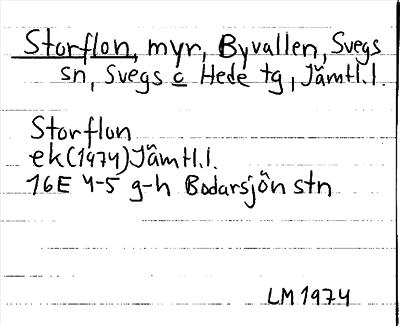 Storflon, myr, Byvallen, Svegs
sn, Svegs o Hede tg, Jämtl.l.
Storflon
ek(1974)Jämtl.l.
16E 4-5 g-h Bodarsjön stn
LM 1974